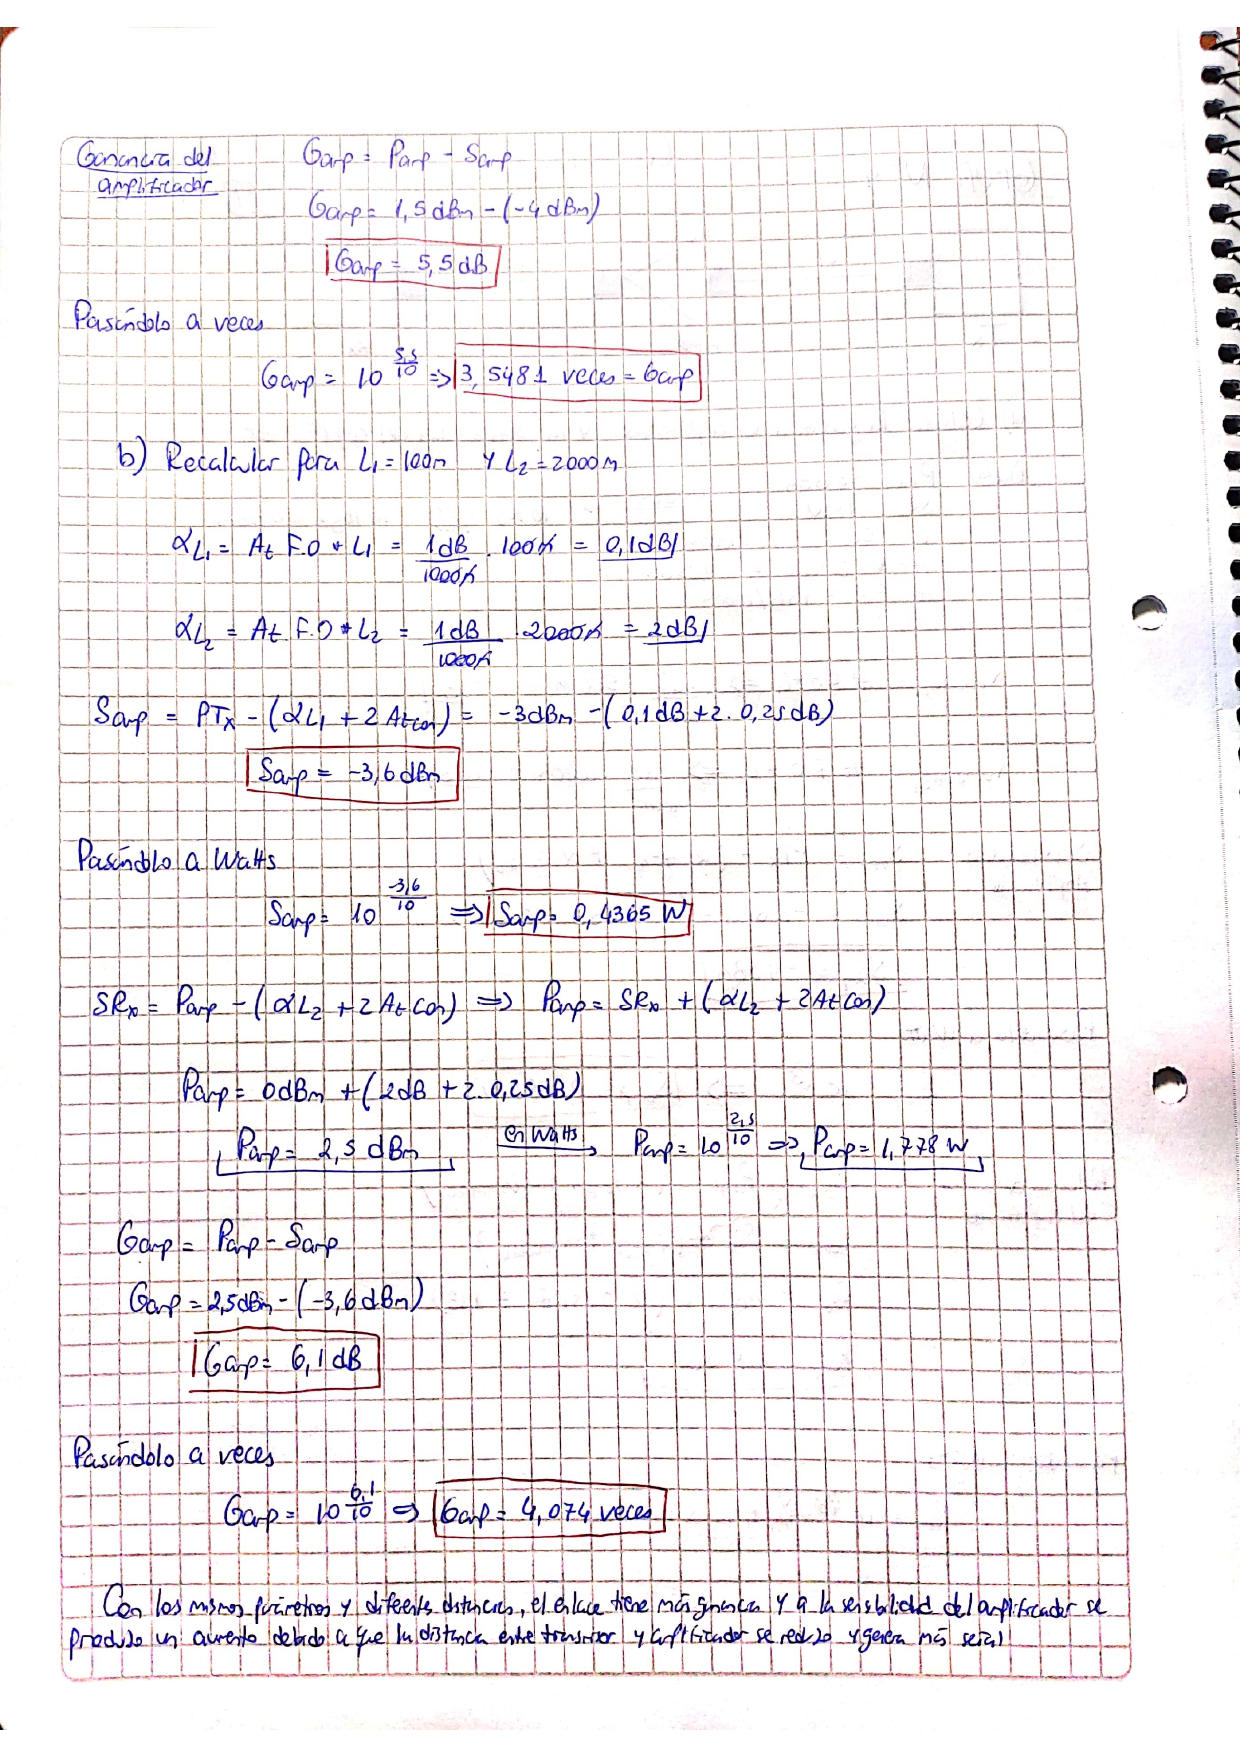 Ganancia del
amplificador
Gamp = Pamp - Samp
Gamp = 1,5 dBm - (-4 dBm)
Gamp = 5,5 dB
Pasándolo a veces
Gamp = 10^(5,5/10) => 3,5481 veces = Gamp
b) Recalcular para L1 = 100m y L2 = 2000m
αL1 = At F.O * L1 = 1dB/1000m . 100m = 0,1dB
αL2 = At F.O * L2 = 1dB/1000m . 2000m = 2dB
Samp = PTx - (αL1 + 2 Atcon) = -3dBm - (0,1dB + 2. 0,25dB)
Samp = -3,6 dBm
Pasándolo a Watts
Samp = 10^(-3,6/10) => Samp = 0,4365 W
SRx = Pamp - (αL2 + 2 At Con) => Pamp = SRx + (αL2 + 2At Con)
Pamp = 0dBm + (2dB + 2. 0,25dB)
Pamp = 2,5 dBm en Watts → Pamp = 10^(2,5/10) => Pamp = 1,778 W
Gamp = Pamp - Samp
Gamp = 2,5dBm - (-3,6 dBm)
Gamp = 6,1 dB
Pasándolo a veces
Gamp = 10^(6,1/10) => Gamp = 4,074 veces
Con los mismos parámetros y diferentes distancias, el enlace tiene más ganancia y a la sensibilidad del amplificador se
produjo un aumento debido a que la distancia entre transmisor y amplificador se redujo y genera más señal